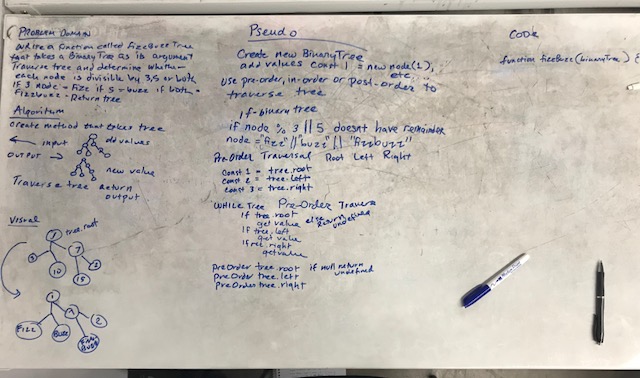 PROBLEM DOMAIN
write a function called FizzBuzzTree
that takes a Binary Tree as its argument
Traverse tree and determine whether
each node is divisible by 3, 5 or both
IF 3 node = Fizz if 5 = buzz if both =
Fizzbuzz - Return tree
Algorithm
create method that takes tree
input
old values
output
new value
Traverse tree return
output
Visual
tree.root
1
7
10
15
1
2
Fizz
Buzz
Fizz
Buzz
Pseudo
Create new BinaryTree
add values const 1 = new node(1),
etc...
use pre-order, in-order or post-order to
traverse tree
if-binary tree
if node % 3 || 5 doesnt have remainder
node = "fizz" || "buzz" || "fizzbuzz"
PreOrder Traversal Root Left Right
const 1 = tree.root
const 2 = tree.left
const 3 = tree.right
WHILE Tree Pre-Order Travers
if tree.root
get value else Return undefined
if tree.left
get value
if tree.right
get value
preOrder tree.root if null return
undefined
preOrder tree.left
preOrder tree.right
CODE
function fizzbuzz(binaryTree) {